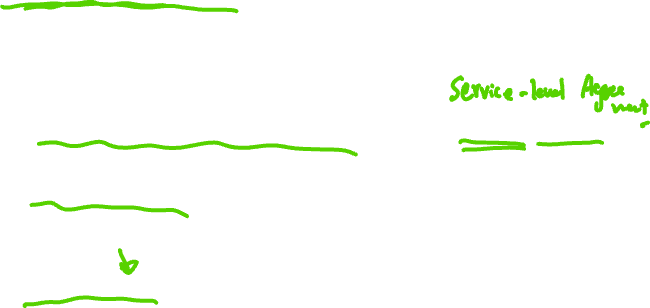 Service-level Agree
ment